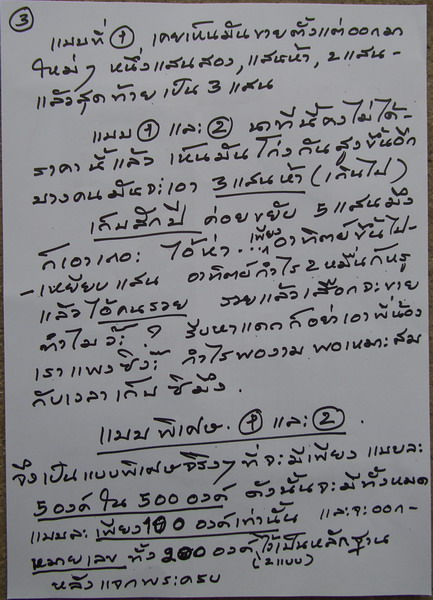 ③
แบบที่ ① เคยเห็นมันขายตั้งแต่ออกมา
ใหม่ๆ หนึ่งแสนสอง, แสนห้า, 2 แสน -
แล้วสุดท้ายเป็น 3 แสน
แบบ ① และ ② นาทีนี้คงไม่ได้ -
ราคานี้แล้ว เห็นมันโก่งกันสูงขึ้นอีก
บางคนมันจะเอา 3 แสนห้า (เกินไป)
เก็บสักปี ค่อยขยับ 5 แสนมึง
ก็เอาเถอะ ไอ้ห่า. เพียงอาทิตย์ขึ้นไป -
- เหยียบแสน อาทิตย์กำไร 2 หมื่นกันรู
แล้วไอ้คนรวย รวยแล้วเสือกจะขาย
ทำไมวะ ? รีบหาแดกก็อย่าเอาพี่น้อง
เราแพงซิวะ กำไรพองาม พอเหมาะสม
กับเวลาเก็บซิมึง.
แบบพิเศษ. ① และ ② .
จึงเป็นแบบพิเศษจริงๆ ที่จะมีเพียง แบบละ
5 องค์ ใน 500 องค์ ดังนั้นจะมีทั้งหมด
แบบละ เพียง 100 องค์เท่านั้น และจะออก -
หมายเลข ทั้ง 200 องค์ ไว้เป็นหลักฐาน
(2 แบบ)
หลังแจกพระครบ